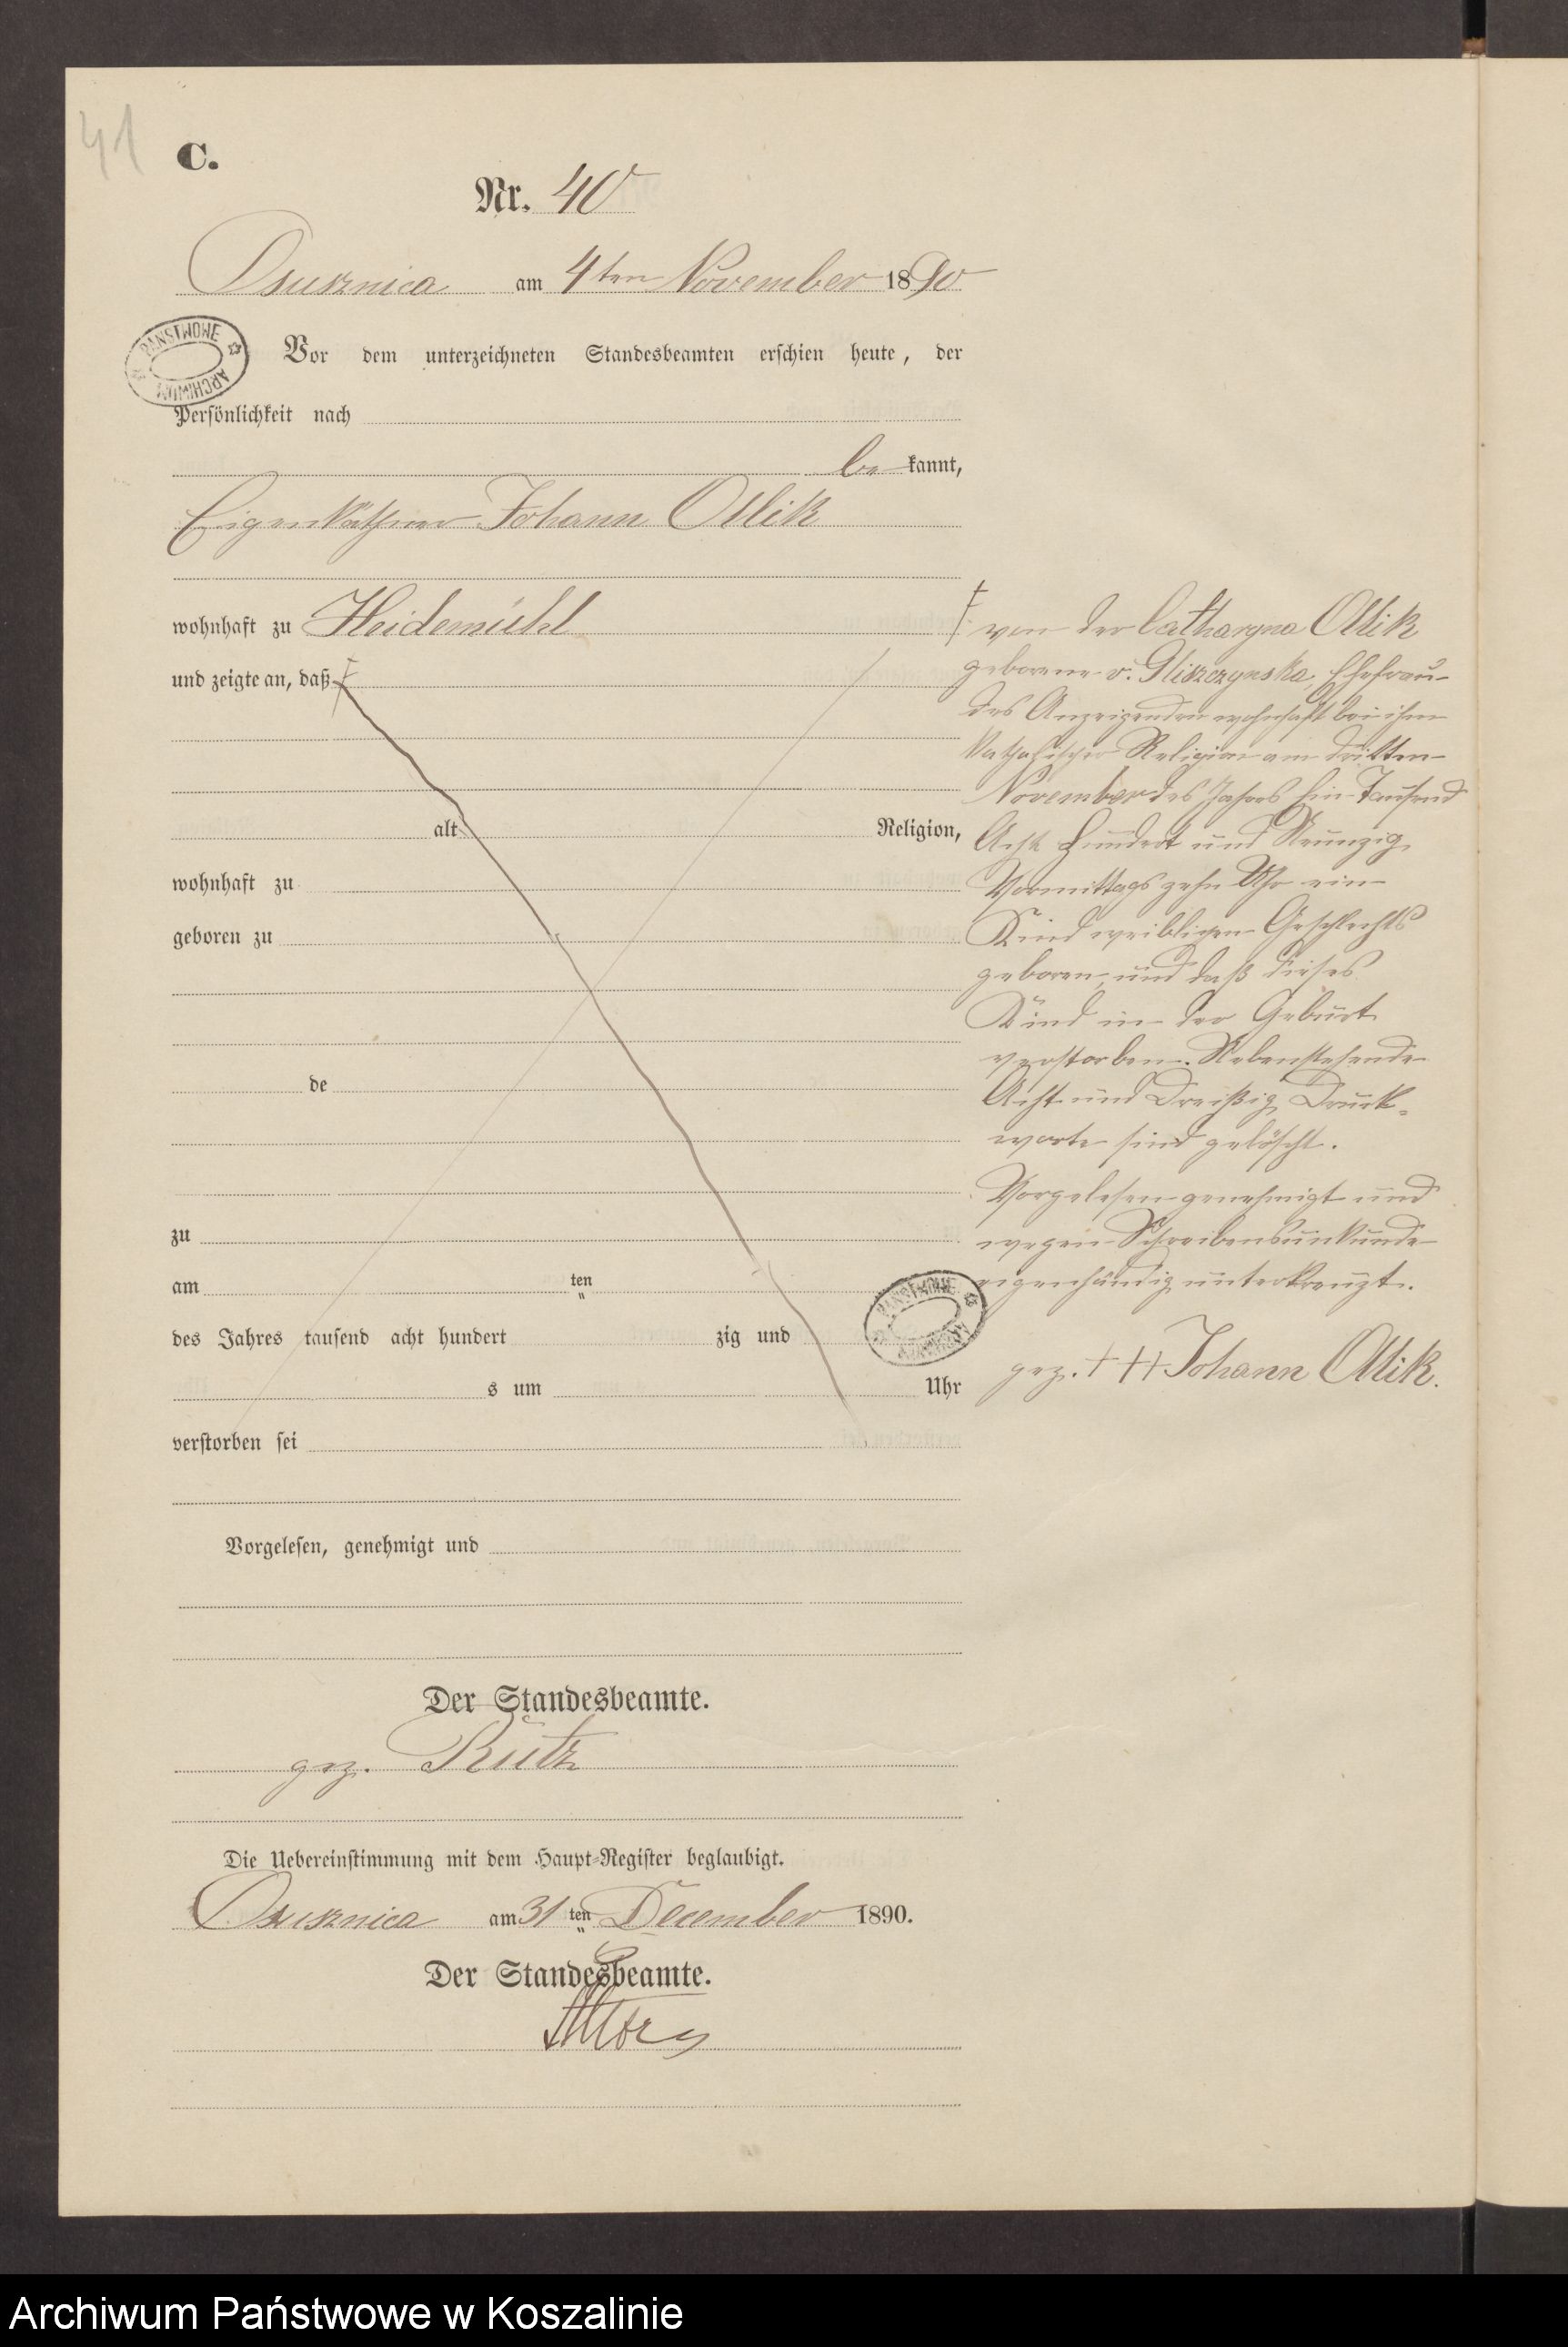 41
C.
Nr. 40
Osusznica am 4ten November 1890
PAŃSTWOWE ARCHIWUM
Vor dem unterzeichneten Standesbeamten erschien heute, der
Persönlichkeit nach
be kannt,
Eigenkäthner Johann Ollik
wohnhaft zu Heidemühl
und zeigte an, daß
alt Religion,
wohnhaft zu
geboren zu
de
zu
am ten
des Jahres tausend acht hundert zig und
s um Uhr
verstorben sei
Vorgelesen, genehmigt und
von der Catharyna Ollik
geborene v. Gliszczynska, Ehefrau
des Anzeigenden wohnhaft bei ihm
katholischer Religion am dritten
November des Jahres Ein Tausend
Acht Hundert und Neunzig
Vormittags zehn Uhr ein
Kind weiblichen Geschlechts
geboren, und daß dieses
Kind in der Geburt
verstorben. Nebenstehende
Acht und Dreißig Druck-
worte sind gelöscht.
Vorgelesen genehmigt und
wegen Schreibensunkunde
eigenhändig unterkreuzt.
gez. +++ Johann Ollik.
PAŃSTWOWE ARCHIWUM
Der Standesbeamte.
gez. Rutz
Die Uebereinstimmung mit dem Haupt-Register beglaubigt.
Osusznica am 31 ten December 1890.
Der Standesbeamte.
Archiwum Państwowe w Koszalinie